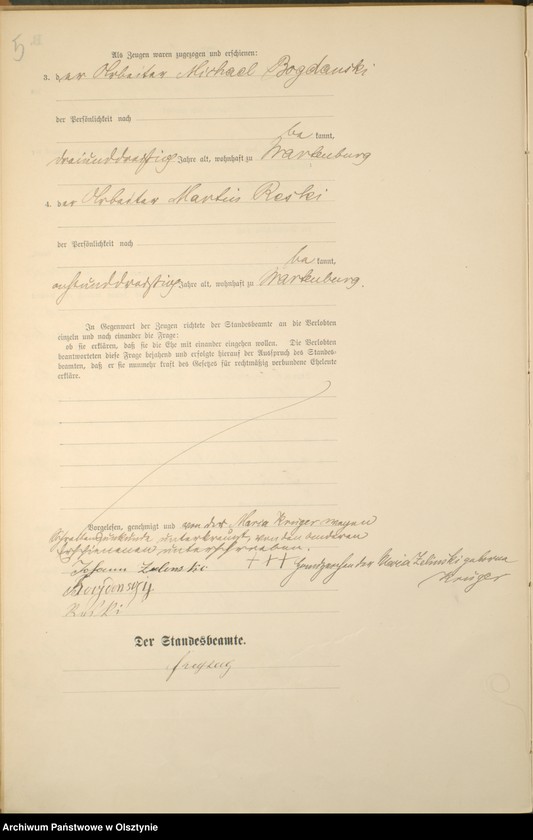 5
Als Zeugen waren zugezogen und erschienen:
3. der Arbeiter Michael Bogdanski
der Persönlichkeit nach
be kannt,
dreiunddreißig Jahre alt, wohnhaft zu Wartenburg
4. der Arbeiter Martin Reski
der Persönlichkeit nach
be kannt,
achtunddreißig Jahre alt, wohnhaft zu Wartenburg.
In Gegenwart der Zeugen richtete der Standesbeamte an die Verlobten
einzeln und nach einander die Frage:
ob sie erklären, daß sie die Ehe mit einander eingehen wollen. Die Verlobten
beantworteten diese Frage bejahend und erfolgte hierauf der Ausspruch des Standes-
beamten, daß er sie nunmehr kraft des Gesetzes für rechtmäßig verbundene Eheleute
erkläre.
Vorgelesen, genehmigt und von der Maria Krüger wegen
Schreibensunkunde unterkreuzt, von den anderen
Erschienenen unterschrieben.
Johann Zelinski +++ Handzeichen der Maria Zelinski geborene
Krüger
Bogdanski
Reski
Der Standesbeamte.
Archiwum Państwowe w Olsztynie